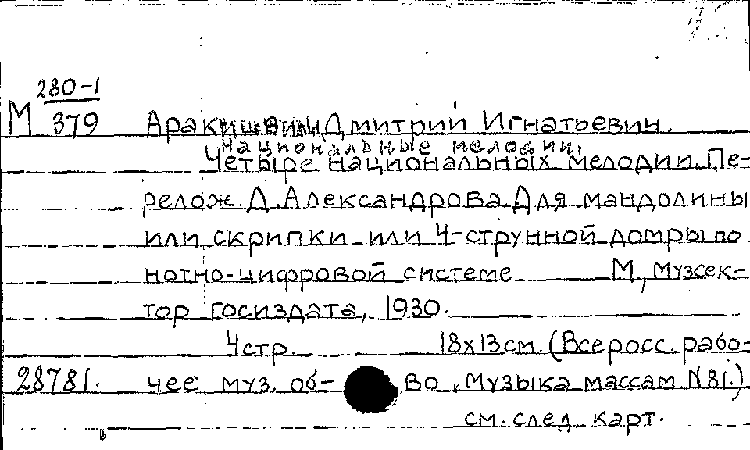 280-1
М 379 Аракишвили Дмитрий Игнатьевич.
Национальные мелодии.
Четыре национальных мелодии. Пе-
релож. Д. Александрова. Для мандолины
или скрипки или 4-струнной домры по
нотно-цифровой системе М, музсек-
тор госиздата, 1930.
4 стр. 18х13 см. (Всеросс. рабо-
28781. чее муз. об-во, Музыка массам N81.)
см. след. карт.